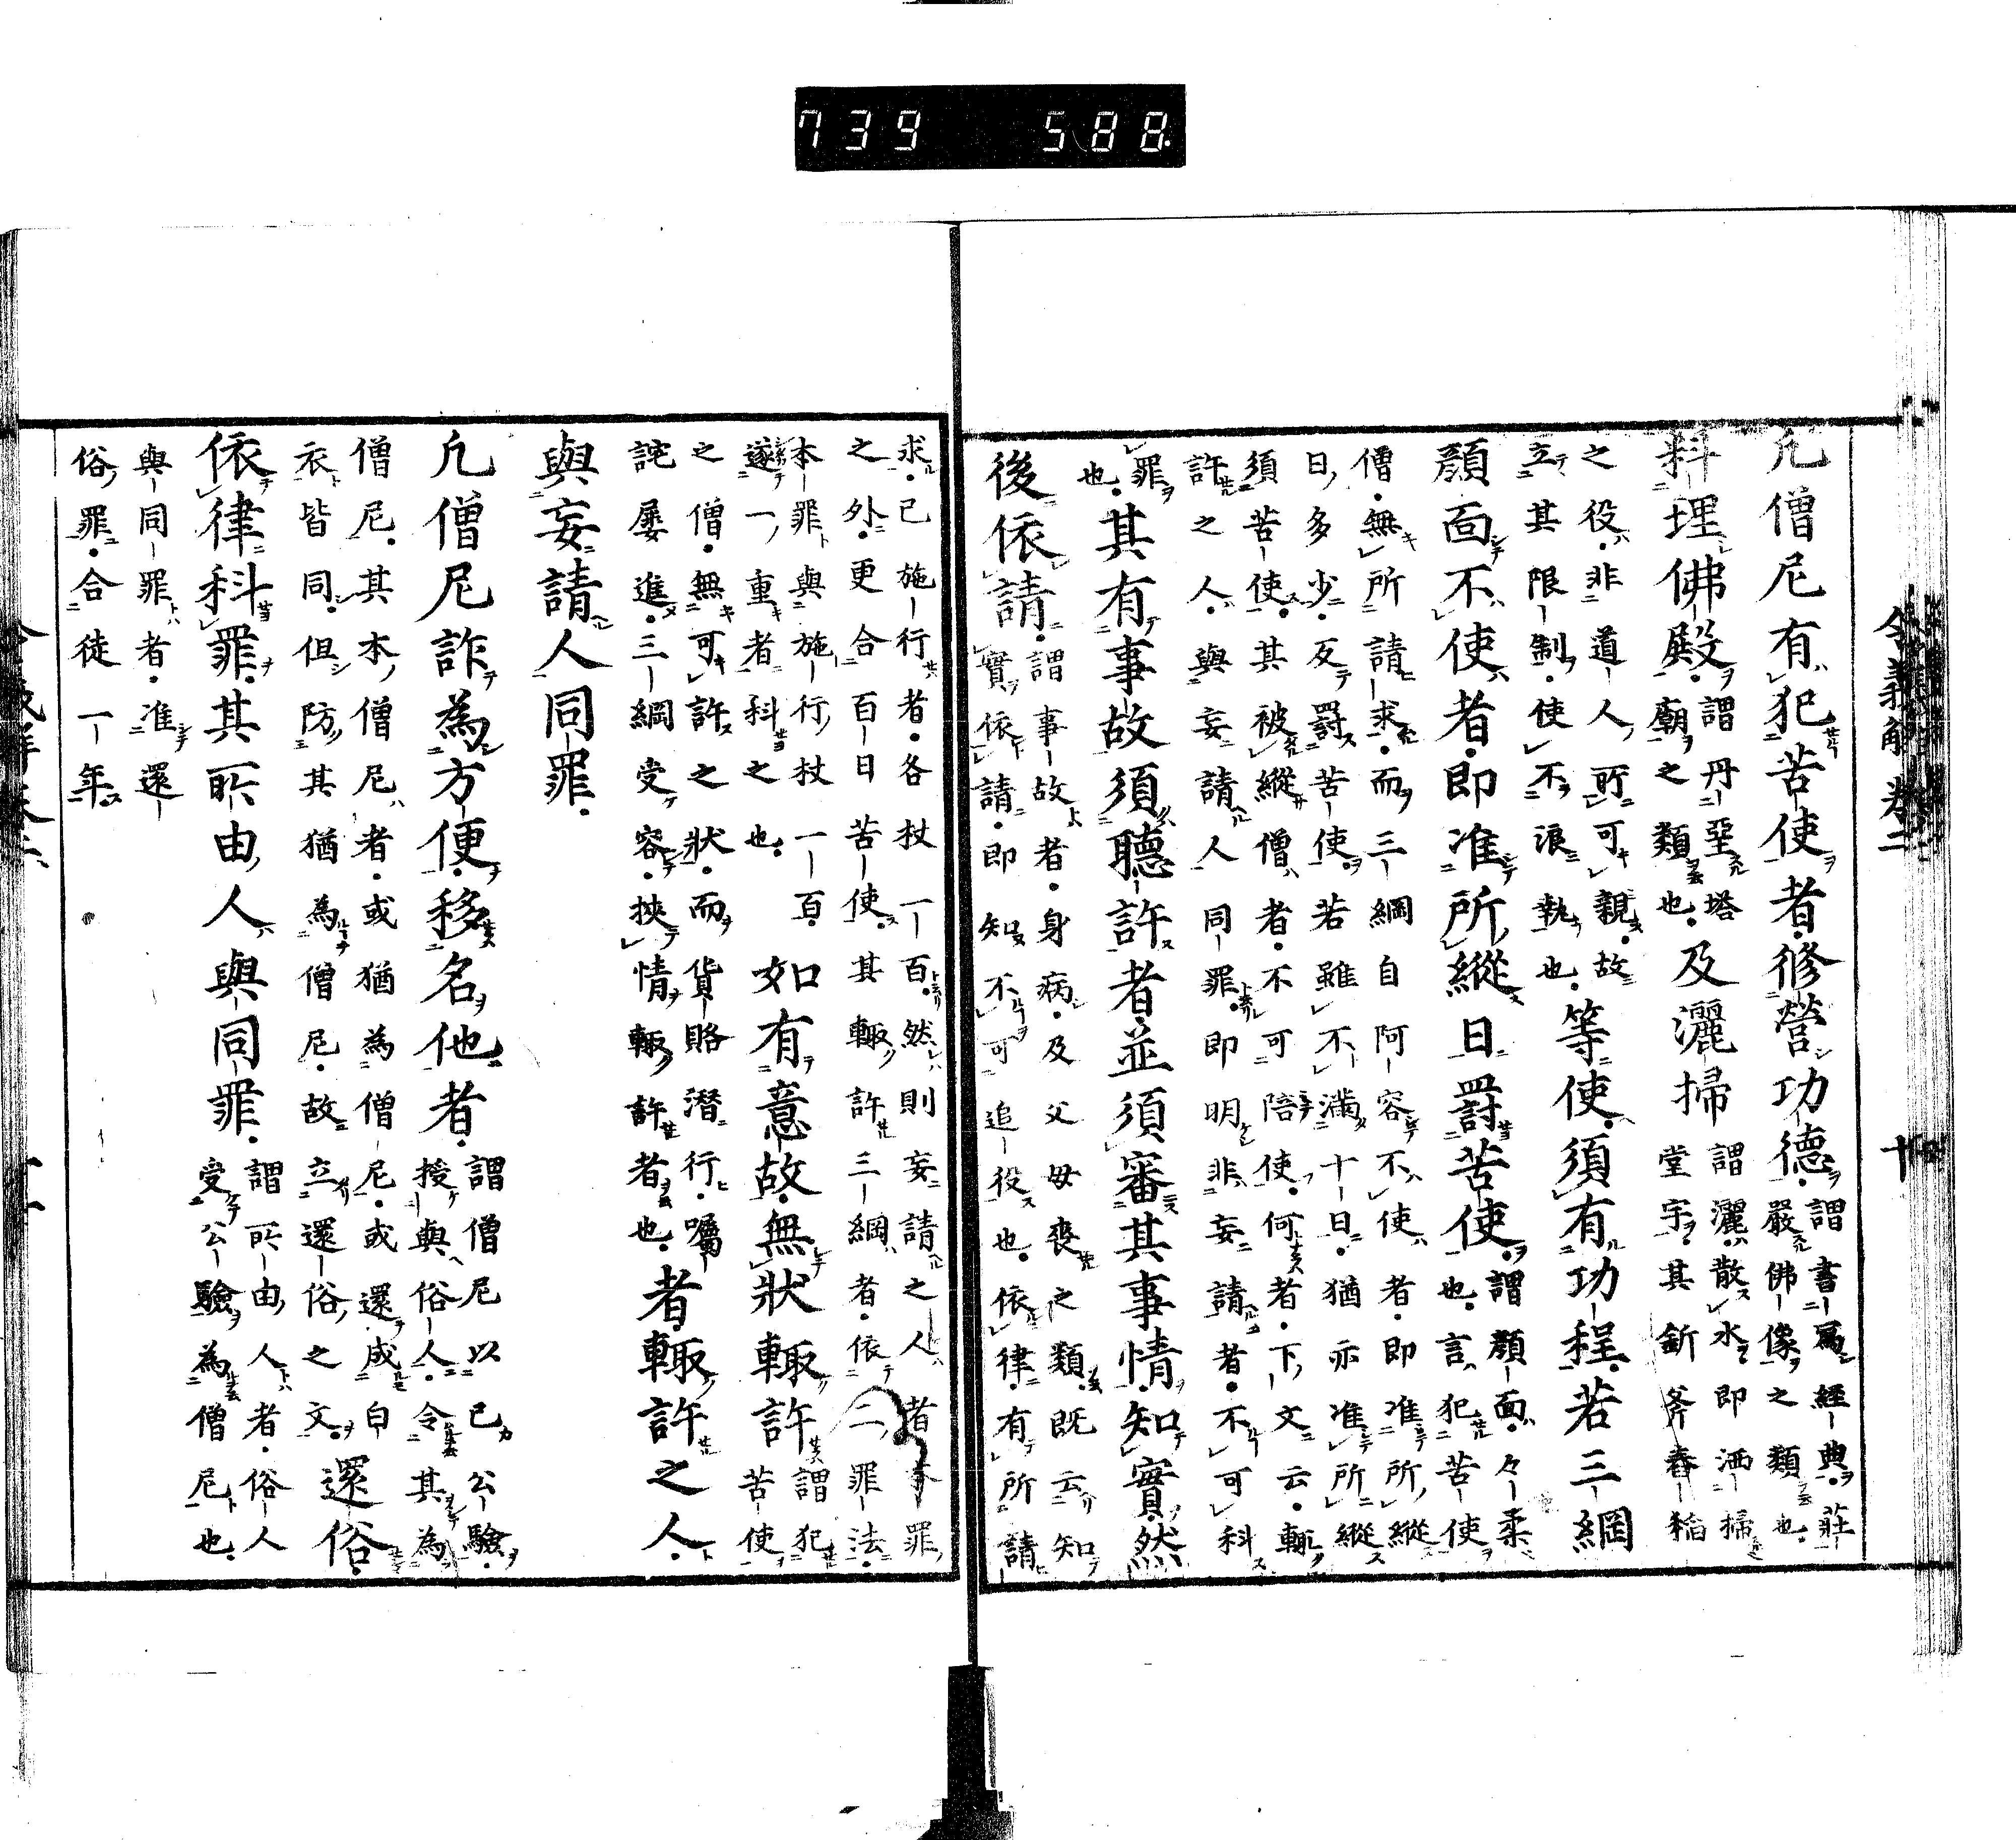 739 588
令義解 卷二 十
凢僧尼有犯苦使者修營功德謂書寫經典莊嚴佛像之類也
料理佛殿謂丹堊塔廟之類也及灑掃謂灑散水即洒掃堂宇其釿斧舂稲
之役非道人所可親故立其限制使不浪執也等使須有功程若三綱
顔面不使者即准所縱日罸苦使謂顔面々柔也言犯苦使
僧無所請求而三綱自阿容不使者即准所縱
日多少反罸苦使若雖不滿十日猶亦准所縱
須苦使其被縱僧者不可陪使何者下文云輙
許之人與妄請人同罪即明非妄請者不可科
罪也其有事故須聽許者並須審其事情知實然
後依請謂事故者身病及父母喪之類既云知實依請即知不可追役也依律有所請
求已施行者各杖一百然則妄請之人者本罪
之外更合百日苦使其輙許三綱者依二罪法
本罪與施行杖一百遂一重者科之也如有意故無狀輙許謂犯苦使
之僧無可許之狀而貨賂潜行囑
詫屡進三綱受容挾情輙許者也者輙許之人
與妄請人同罪
凢僧尼詐為方便移名他者謂僧尼以己公驗授與俗人令其為
僧尼其本僧尼者或猶為僧尼或還成白
衣皆同但防其猶為僧尼故立還俗之文還俗
依律科罪其所由人與同罪謂所由人者俗人受公驗為僧尼也
與同罪者准還
俗罪合徒一年